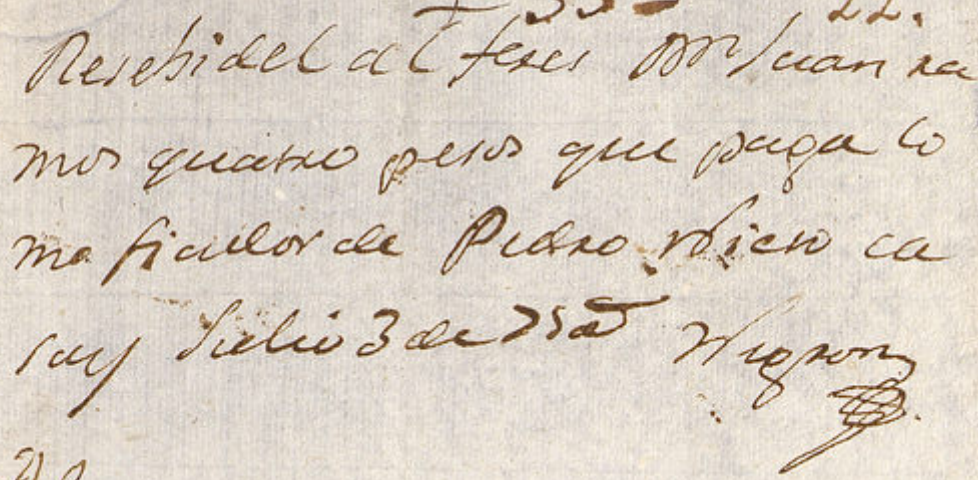 Resebi del alferes Dn Juan ra
mos quatro pesos que paga co
mo fiador de Pedro
say Julio 3 de 75 as